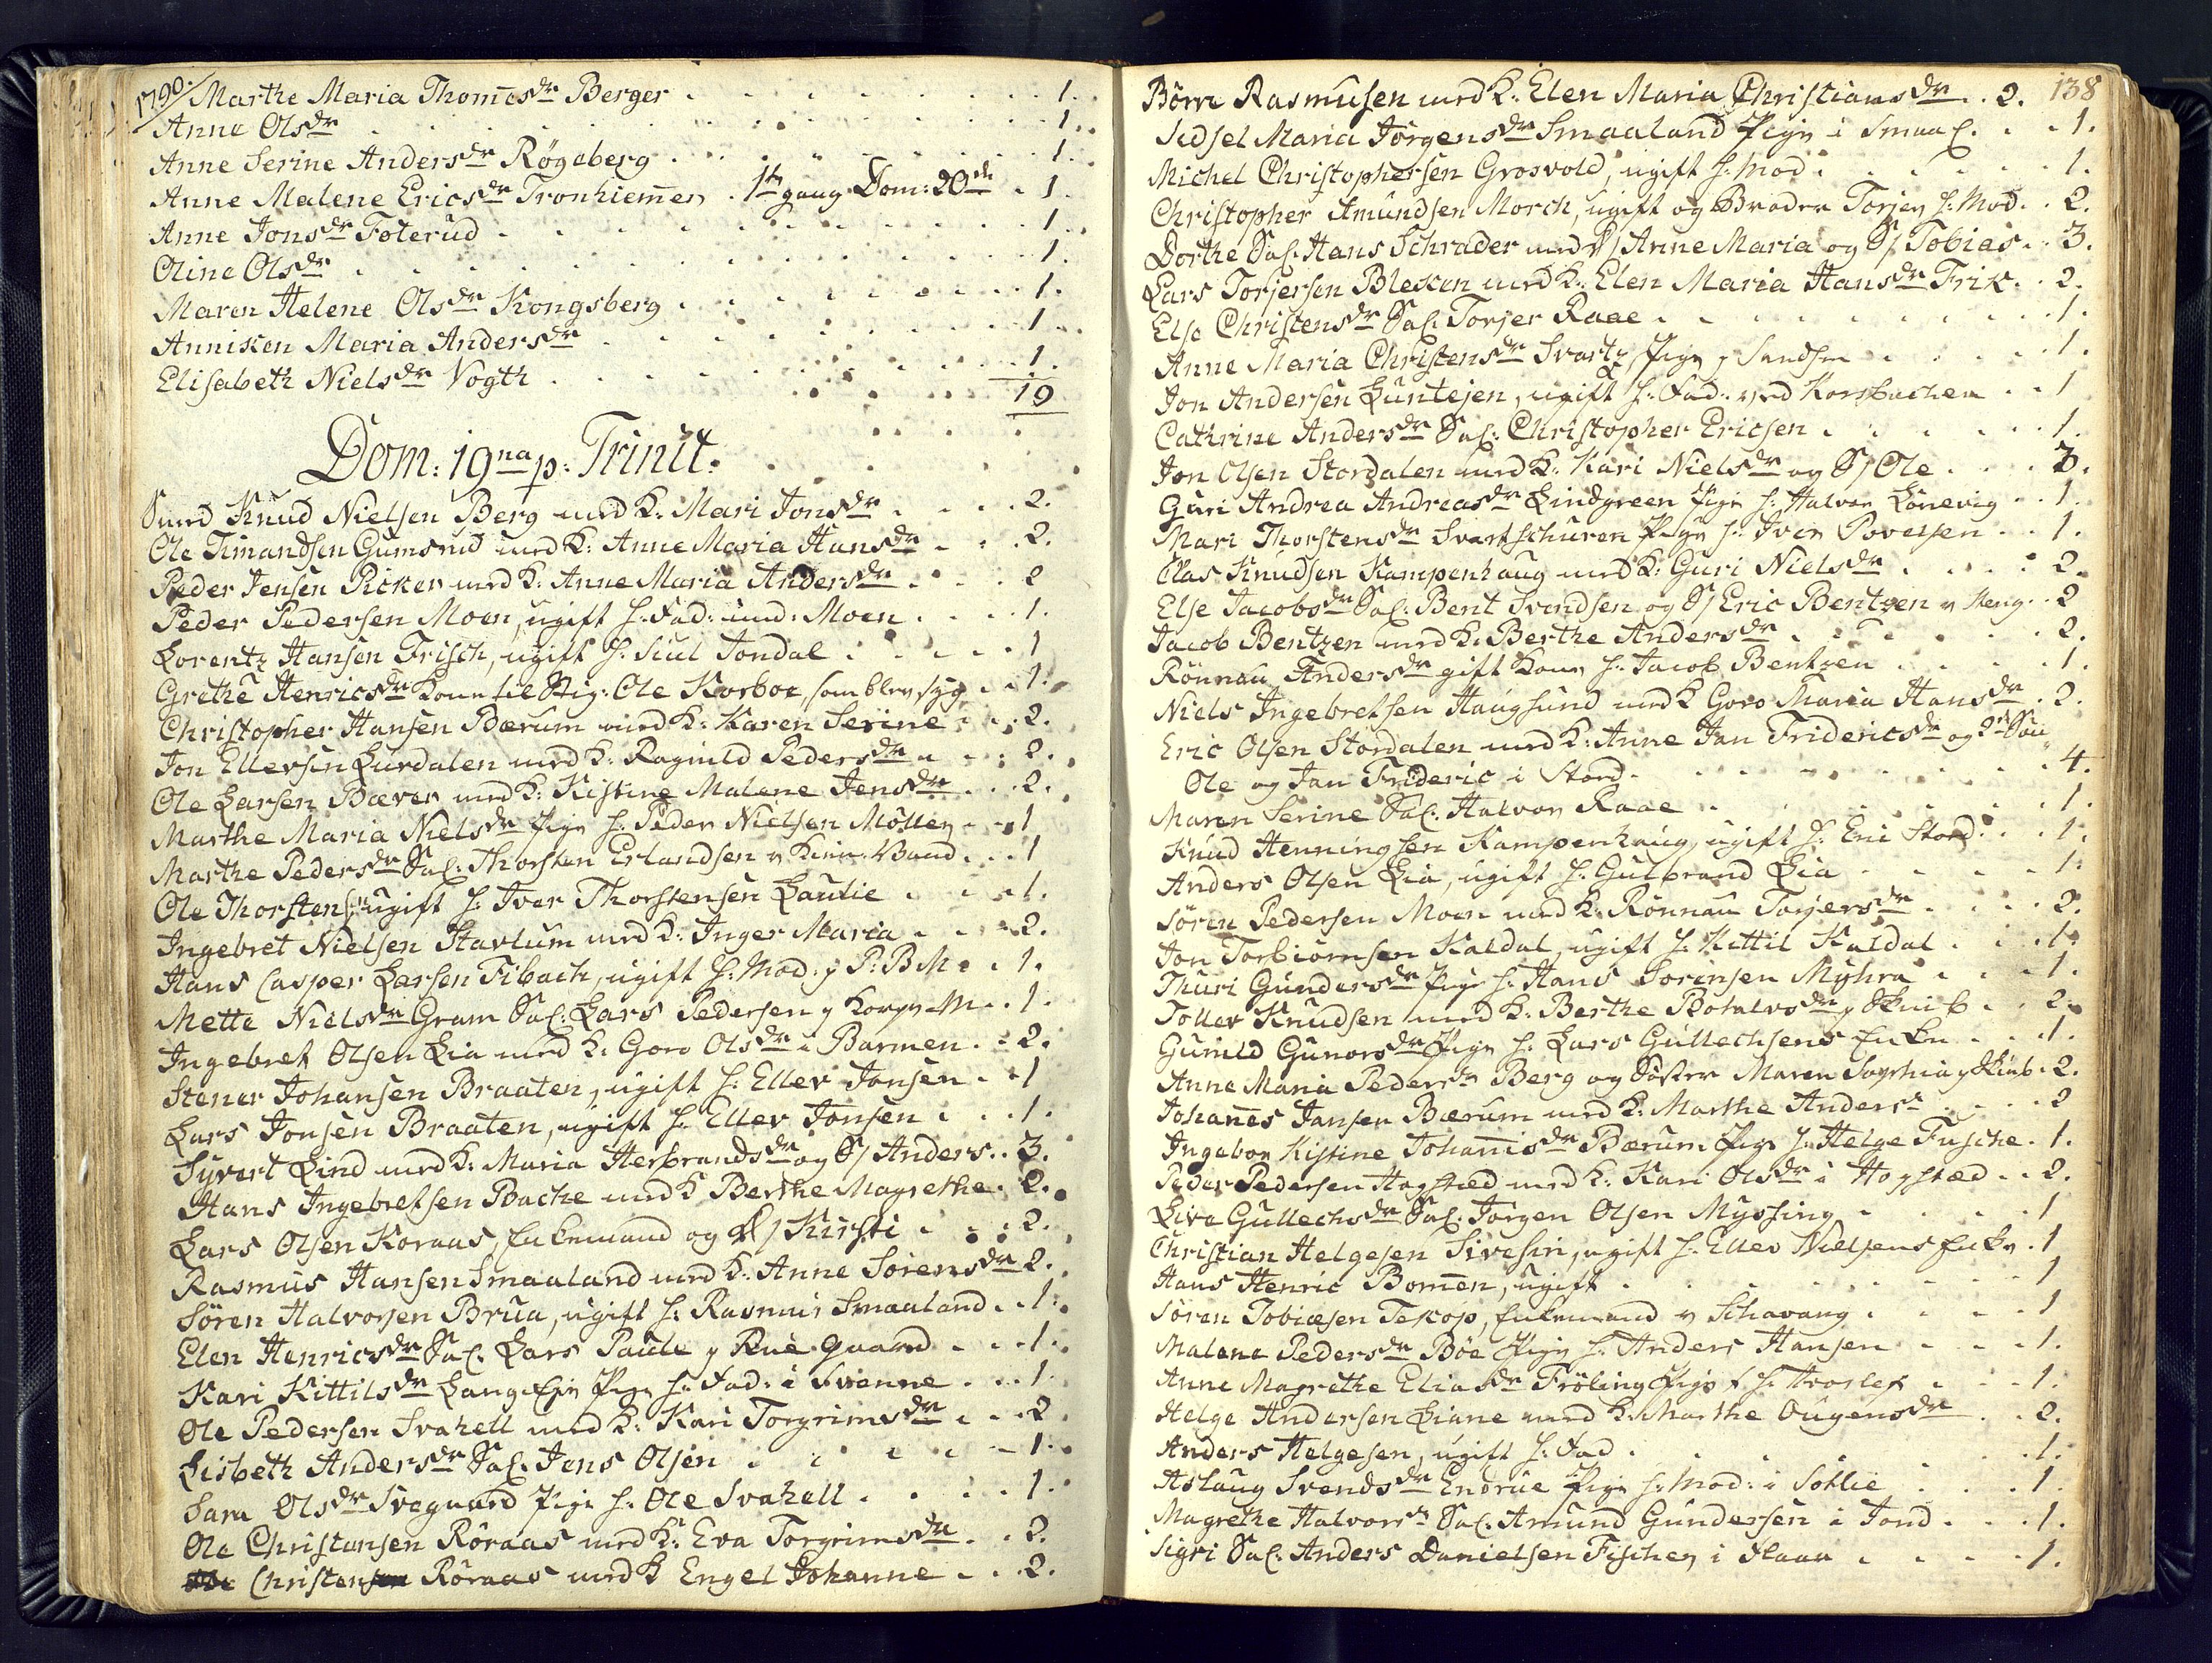 1790.
Marthe Maria Thomesdr Berger . . . 1.
Anne Olsdr . . . 1.
Anne Serine Andersdr Røgeberg . . . 1.
Anne Malene Ericsdr Tronhiemen . 1te gang Dom: 20de . 1
Anne Jonsdr Foterud . . . 1.
Oline Olsdr . . . 1.
Maren Helene Olsdr Kongsberg . . . 1.
Annisken Maria Andersdr . . . 1.
Elisabeth Nielsdr Vogth . . . 1.
19
Dom: 19na p: Trinit.
Knud Nielsen Berg med K: Mari Jonsdr . . . 2.
Ole Timandsen Gumsrud med K: Anne Maria Hansdr . . . 2.
Peder Jensen Picker med K: Anne Maria Andersdr . . . 2
Peder Pedersen Moen, ugift h: Fad: und: Moen . . . 1.
Lorentz Hansen Frisch, ugift h: Siul Jondal . . . 1
Grethe Henricsdr Kone til Stig: Ole Korboe, som blev syg . . 1.
Christopher Hansen Bærum med K: Karen Serine . . . 2.
Jon Ellevsen Lurdalen med K: Ragnild Pedersdr . . . 2.
Ole Larsen Bæver med K: Kistine Malene Jensdr . . . 2.
Marthe Maria Nielsdr Pige h: Peder Nielsen Möller . . 1
Marthe Pedersdr Sal: Thorsten Erlandsen . . . 1
Ole Thorstens: ugift h: Iver Thorstensen Laulie . . . 1.
Ingebret Nielsen Stavlum med K: Inger Maria . . . 2.
Hans Casper Larsen Fibach, ugift h: Mod: p P: B M . . 1.
Mette Nielsdr Gram Sal: Lars Pedersen . . 1.
Ingebret Olsen Lia med K: Goro Olsdr i Barmen . . 2.
Stener Johansen Braaten, ugift h: Ellev Jonsen . . 1
Lars Jonsen Braaten, ugift h: Ellev Jonsen . . . 1.
Syvert Lind med K: Maria Herbrandsdr og S/ Anders . . 3.
Hans Ingebretsen Bache med K Berthe Magrethe . 2.
Lars Olsen Koraas, Enkemand og D/ Kirsti . . . 2.
Rasmus Hansen Smaaland med K: Anne Sörensdr 2.
Sören Halvorsen Brua, ugift h: Rasmus Smaaland . . 1.
Elen Henricsdr Sal: Lars Paule p Rue-gaard . . . 1.
Kari Kittilsdr Pige h: Fad: i Svenne . . . 1.
Ole Pedersen Svahell med K: Kari Torgrimsdr . . . 2.
Lisbeth Andersdr Sal: Jens Olsen . . . 1.
Sara Olsdr Svegaard Pige h: Ole Svahell . . . 1.
Ole Christensen Röraas med K: Eva Torgrimsdr . . 2.
Christen Röraas med K Engel Johanne . . . 2.
138
Börre Rasmusen med K: Elen Maria Christiansdr . . 2.
Sidsel Maria Jörgensdr Smaaland Pige i Smaal: . . 1.
Michel Christophersen Grosvold, ugift h: Mod . . . 1.
Christopher Amundsen Morch, ugift og Broder Torjer h: Mod . . 2.
Dorthe Sal: Hans Schrader med D/ Anne Maria og S/ Tobias . . 3.
Lars Torjersen Bleken med K: Elen Maria Hansdr Frik . . 2.
Else Christensdr Sal: Torjer Raae . . . 1.
Anne Maria Christensdr Svartz, Pige . . . 1.
Jon Andersen Luntejen, ugift h: Fad: ved Korsbachen . . 1
Cathrine Andersdr Sal: Christopher Ericsen . . . 1.
Jon Olsen Stordalen med K: Kari Nielsdr og S/ Ole . . . 3.
Guri Andrea Andreasdr Lindgreen Pige h: Halvor Lönevig . . 1.
Mari Thorstensdr Svartschuren Pige h: Iver Povelsen . . 1.
Clas Knudsen Kampenhaug med K: Guri Nielsdr . . . 2.
Else Jacobsdr Sal: Bent Svendsen og S/ Eric Bentzen . . 2
Jacob Bentzen med K: Berthe Andersdr . . . 2.
Rönnau Andersdr gift Kone h: Jacob Bentzen . . . 1.
Niels Ingebretsen Haugsund med K Goro Maria Hansdr . 2.
Eric Olsen Stordalen med K: Anne Jan Fridericsdr og 2de Sön
Ole og Jan Frideric i Stord . . . 4.
Maren Serine Sal: Halvor Raae . . . 1.
Knud Henningsen Kampenhaug, ugift h: Eric Stord . . . 1.
Anders Olsen Lia, ugift h: Gulbrand Lia . . . 1.
Sören Pedersen Moen med K: Rönnau Torjersdr . . . 2.
Jon Torbiörnsen Kaldal, ugift h: Kittil Kaldal . . . 1.
Thuri Gundersdr Pige h: Hans Sörensen Myhra . . . 1.
Tollev Knudsen med K: Berthe Botolvsdr . . 2.
Gunild Gunorsdr Pige h: Lars Gullechsens Enke . . . 1.
Anne Maria Pedersdr Berg og Söster Maren Sophia . 2.
Johannes Jansen Bærum med K: Marthe Andersd . . . 2
Ingebor Kistine Johannisdr Bærum Pige h: Helge Fusche . 1.
Peder Pedersen Hogstæd med K: Kari Olsdr i Hogstæd . . 2.
Live Gullechsdr Sal: Jörgen Olsen Myssing . . . 1
Christian Helgesen Sivesin, ugift h: Ellev Nielsens Enke . 1
Hans Henric Bomen, ugift . . . 1
Sören Tobiæsen Teskop, Enkemand . . . 1
Malene Pedersdr Böe Pige h: Anders Hansen . . . 1.
Anne Magrethe Eliasdr Fröling Pige h: . . . 1.
Helge Andersen Liane med K: Marthe Ougensdr . . 2.
Anders Helgesen, ugift h: Fad . . . 1.
Aslaug Svendsdr Endrue Pige h: Mod: i Sollie . . . 1.
Magrethe Halvorsd Sal: Amund Gundersen i Jond . . . 1.
Sigri Sal: Anders Danielsen Fischer i Flaaa . . . 1.